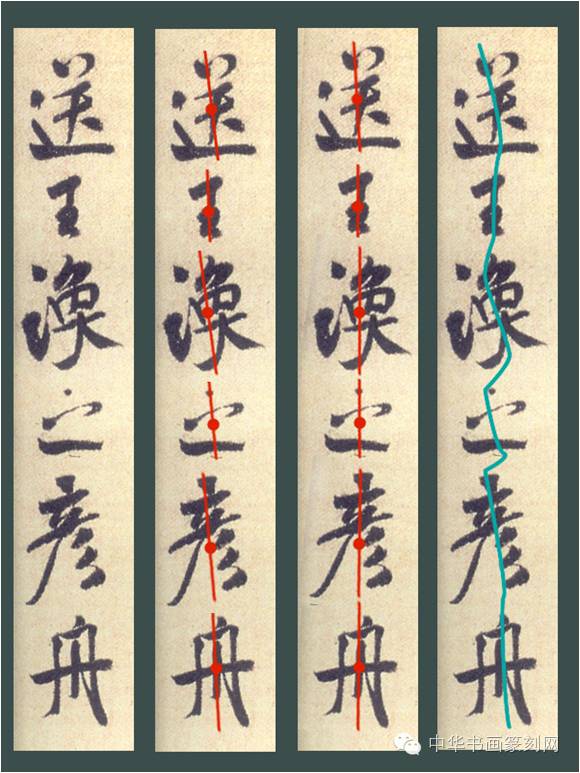 送王渙之彦舟
送王渙之彦舟
送王渙之彦舟
送王渙之彦舟
中华书画篆刻网